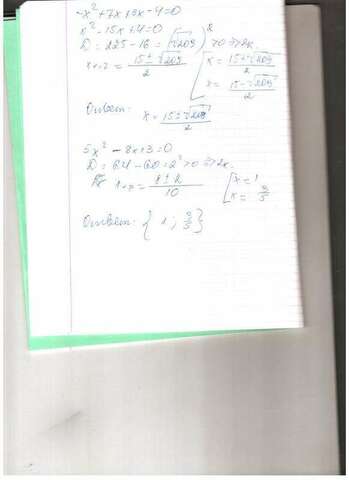 -x² + 7x + 8x - 4 = 0
x² - 15x + 4 = 0
D = 225 - 16 = (√209)² > 0 ⇒ 2к.
x₁,₂ = (15 ± √209)/2 [x = (15 + √209)/2
x = (15 - √209)/2
Ответ: x = (15 ± √209)/2
5x² - 8x + 3 = 0
D = 64 - 60 = 2² > 0 ⇒ 2к.
x₁,₂ = (8 ± 2)/10 [x = 1
x = 3/5
Ответ: {1; 3/5}